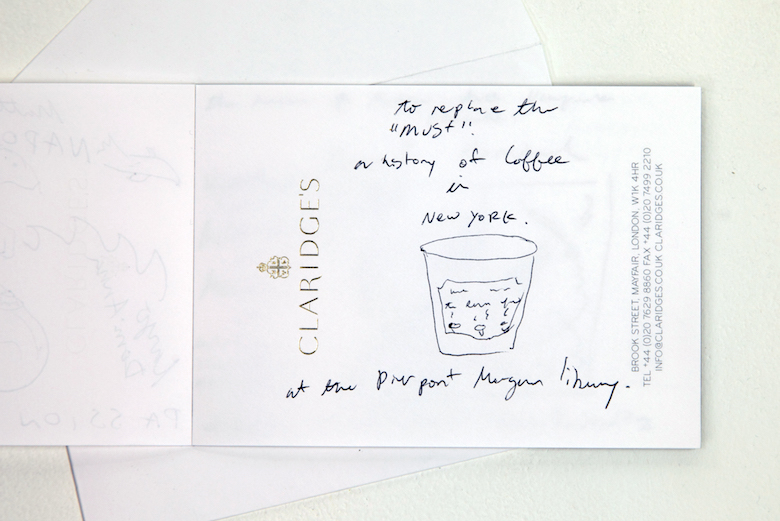 to replace the
"MUST".
a history of Coffee
in
NEW YORK.
at the Pierpont Morgan library.
CLARIDGE'S
BROOK STREET, MAYFAIR, LONDON, W1K 4HR
TEL +44 (0)20 7629 8860 FAX +44 (0)20 7499 2210
INFO@CLARIDGES.CO.UK CLARIDGES.CO.UK
PASSION